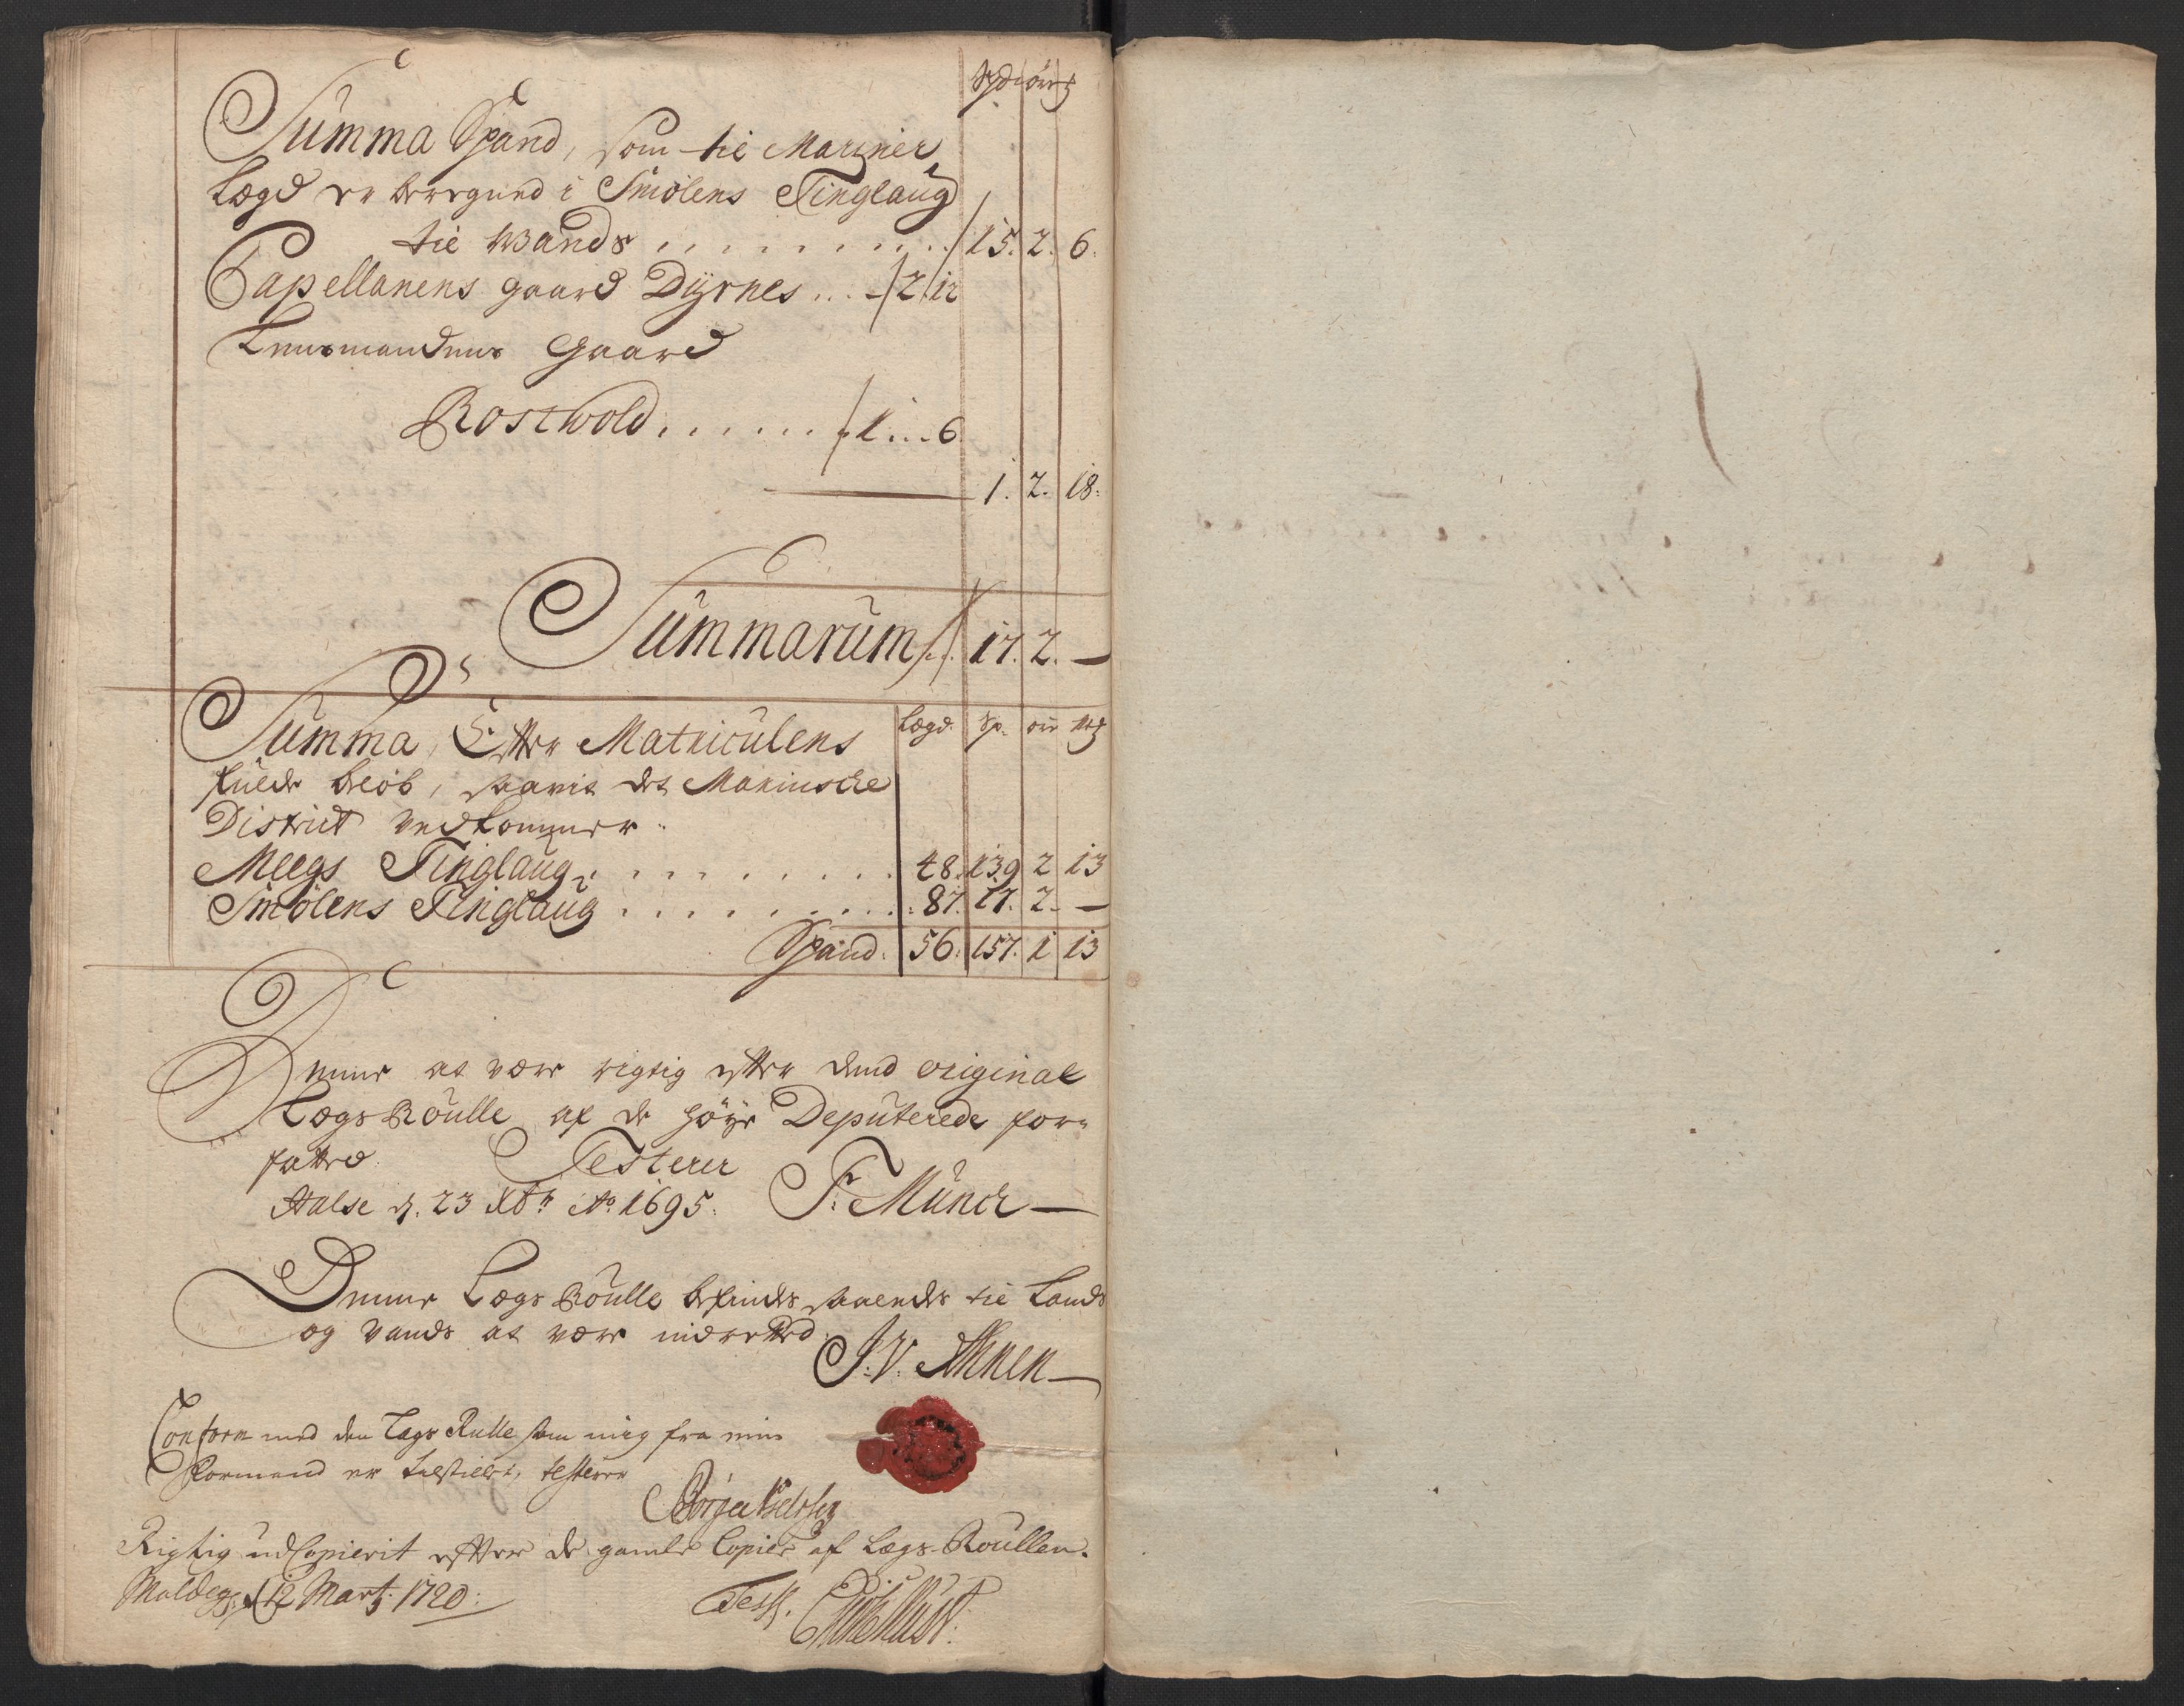 Spd ører
Summa Spand, som til Mariner
Lægd er beregned i Smölens Tinglaug
til Wands . . . . . . . . . 15. 2. 6.
Capellanens gaard Dyrnes . . . - 2 12
Lensmandens Gaard
Rostwold . . . . . . . 1 . . . 6
1. 2. 18.
Summarum 17. 2. —
Summa, Efter Matriculens Lægd. Sp. ör mg
fulde beløb, saavit det Marinsche
District vedkommer.
Meegs Tinglaug . . . . . . . . . 48. 139 2 13
Smölens Tinglaug . . . . . . . . 8 17. 2. —
Spand. 56. 157. 1 13
Denne at være rigtig efter dend original
Lægs Roulle af de höye Deputerede for-
fatted. Testerer
Halse d. 23 Xbr Ao 1695. F: Münch —
Denne Lægs Roulle befindes saaledes til Lands
og Vands at være inderetted
J. V. Ahnen —
Conform med den Lægs Rulle som mig fra min
Formand er tilstillet, testerer
Rigtig udCopierit efter de gamle Copier af Lægs-Roullen.
Molde d 12 Martj 1720.
Test.